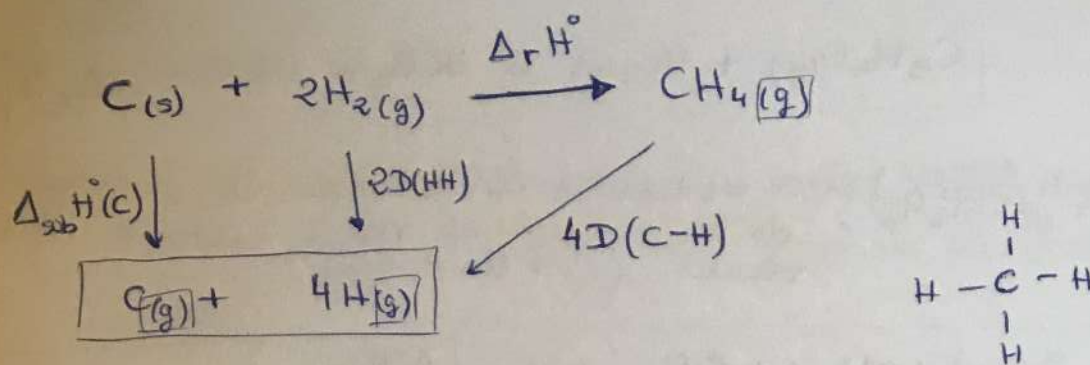 ΔrH°
C(s) + 2H₂(g) ⟶ CH₄(g)
ΔsubH°(C) ↓ ↓ 2D(HH) ↙ 4D(C-H)
C(g) + 4H(g)
H
|
H – C – H
|
H